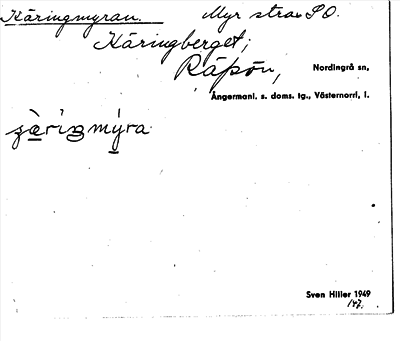 Käringmyran. Myr strax S O.
Käringberget;
Råpön, Nordingrå sn,
Ångermanl. s. doms. tg., Västernorrl. l.
Sven Hiller 1949
147.